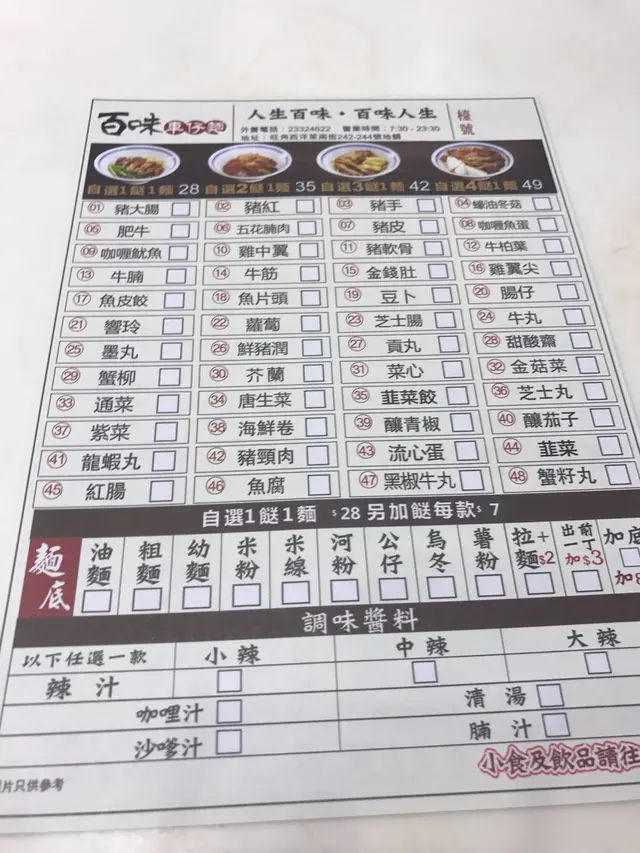 百味車仔麵
人生百味·百味人生
外賣電話：23324622 營業時間：7:30 - 23:30
地址：旺角西洋菜南街242-244號地舖
檯號
自選1餸1麵 28 自選2餸1麵 35 自選3餸1麵 42 自選4餸1麵 49
01 豬大腸 02 豬紅 03 豬手 04 蠔油冬菇
05 肥牛 06 五花腩肉 07 豬皮 08 咖喱魚蛋
09 咖喱魷魚 10 雞中翼 11 豬軟骨 12 牛柏葉
13 牛腩 14 牛筋 15 金錢肚 16 雞翼尖
17 魚皮餃 18 魚片頭 19 豆卜 20 腸仔
21 響玲 22 蘿蔔 23 芝士腸 24 牛丸
25 墨丸 26 鮮豬潤 27 貢丸 28 甜酸齋
29 蟹柳 30 芥蘭 31 菜心 32 金菇菜
33 通菜 34 唐生菜 35 韮菜餃 36 芝士丸
37 紫菜 38 海鮮卷 39 釀青椒 40 釀茄子
41 龍蝦丸 42 豬頸肉 43 流心蛋 44 韮菜
45 紅腸 46 魚腐 47 黑椒牛丸 48 蟹籽丸
自選1餸1麵 $28 另加餸每款$ 7
麵底 油麵 粗麵 幼麵 米粉 米線 河粉 公仔 烏冬 薯粉 拉麵+$2 出前一丁加$3 加底加
調味醬料
以下任選一款 小辣 中辣 大辣
辣汁
咖哩汁 清湯
沙嗲汁 腩汁
小食及飲品請往
片只供參考